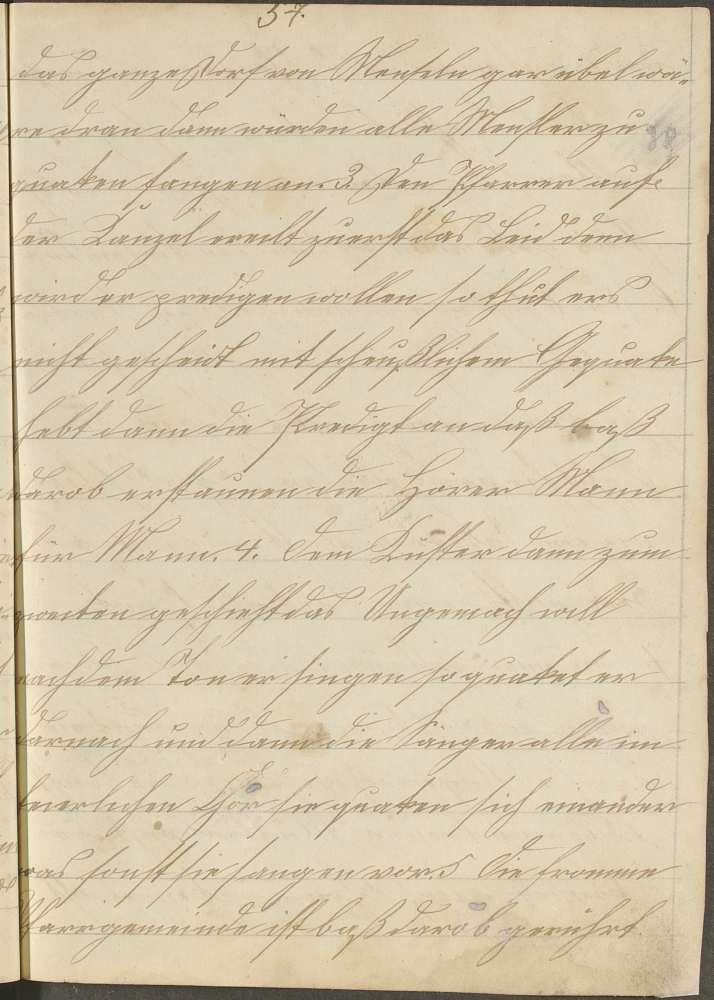 57.
das ganze Dorf von Menseln gar übel wä-
re dran dann würden alle Mensler zu
quaken fangen an. 3. Den Pfarrer auf
der Kanzel ereilt zuerst das Leid denn
wird er predigen wollen so thut ers
nicht gescheidt mit scheußlichem Gequake
hebt dann die Predigt an daß baß
darob erstaunen die Hörer Mann
für Mann. 4. Dem Küster dann zum
zweiten geschieht das Ungemach will
nach dem Ton er singen so quaket er
darnach und dann die Sänger alle im
feierlichen Chor sie quaken sich einander
was sonst sie sangen vor. 5 Die fromme
Pfarrgemeinde ist baß darob gerührt.